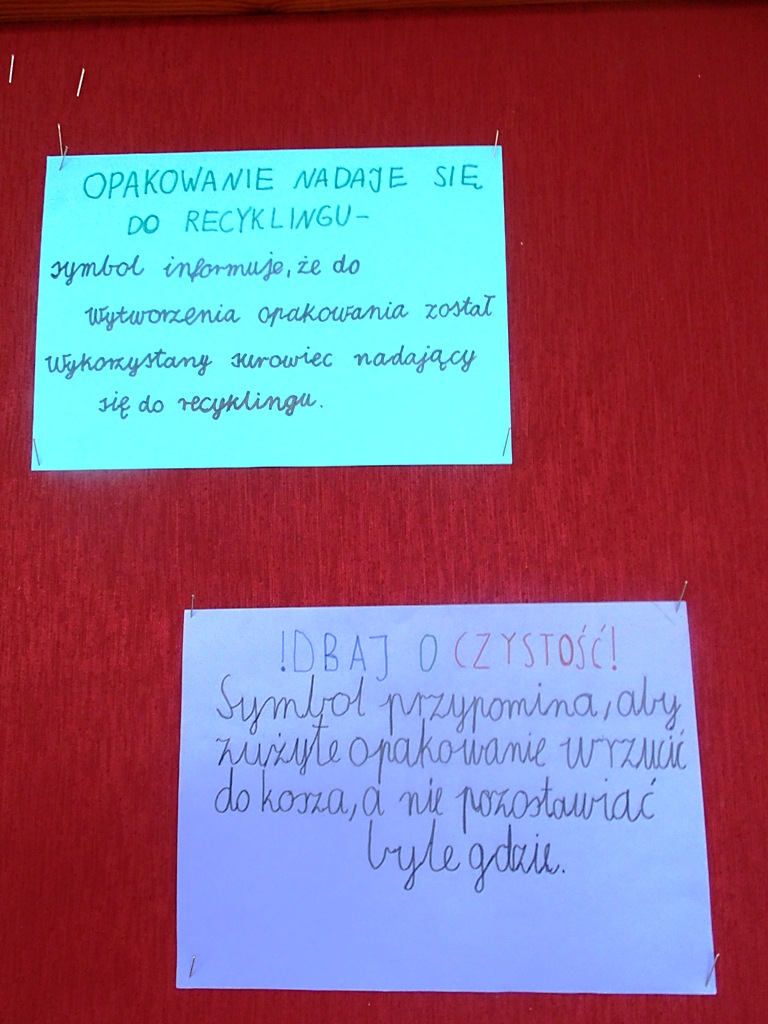 OPAKOWANIE NADAJE SIĘ
DO RECYKLINGU-
symbol informuje, że do
wytworzenia opakowania został
wykorzystany surowiec nadający
się do recyklingu.
!DBAJ O CZYSTOŚĆ!
Symbol przypomina, aby
zużyte opakowanie wrzucić
do kosza, a nie pozostawiać
byle gdzie.